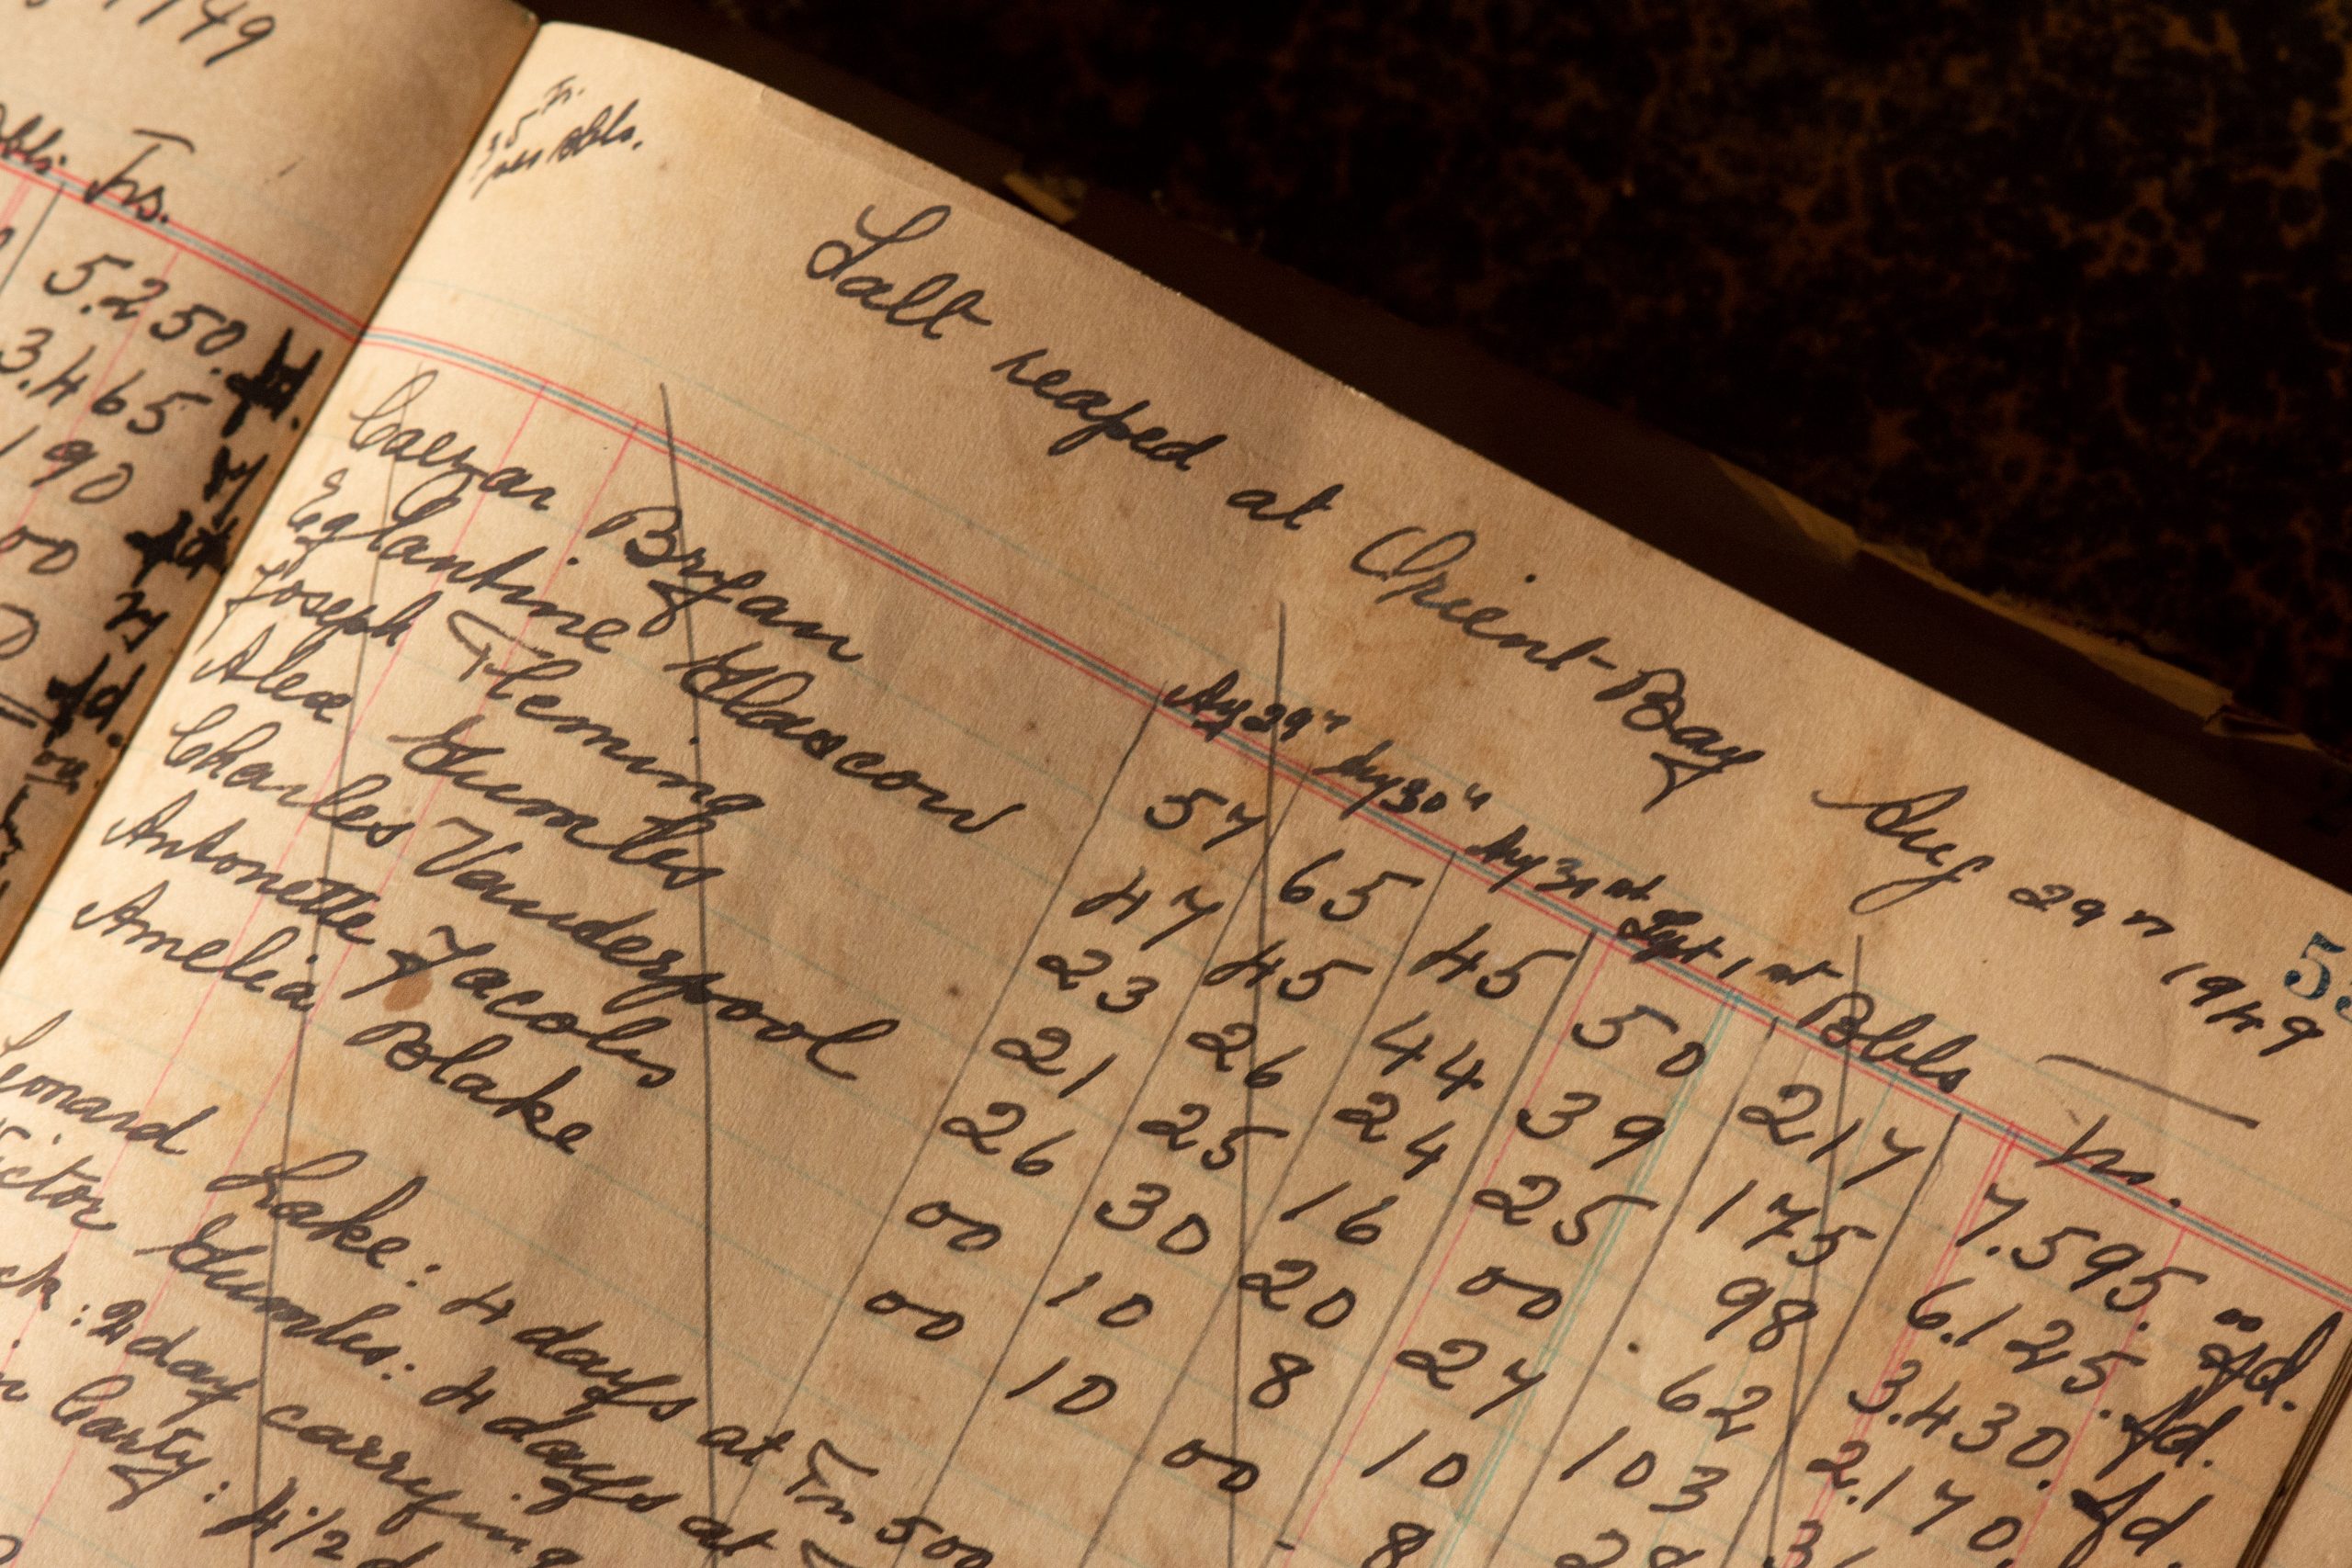 149
Frs.
5.250.
3.465
190
00
35 Fr.
per Bbls.
Salt reaped at Orient-Bay Aug 29th 1949
5
Aug 29" Aug 30" Aug 31st Sept 1st Bbls Frs.
Caezar Bryan 57 65 45 50 217 7.595. pd.
Eglantine Glascow 47 45 44 39 175 6.125. pd.
Joseph Fleming 23 26 24 25 98 3.430. pd.
Alex Gumbs 21 25 16 00 62 2.170.
Charles Vanderpool 26 30 20 27 103 3
Antonette Jacobs 00 10 8 10 28
Amelia Blake 00 10 00 8
Leonard Lake: 4 days at Frs 500
Victor Gumbs: 4 days at
ck: 2 day carrying
Carty: 4 1/2 d